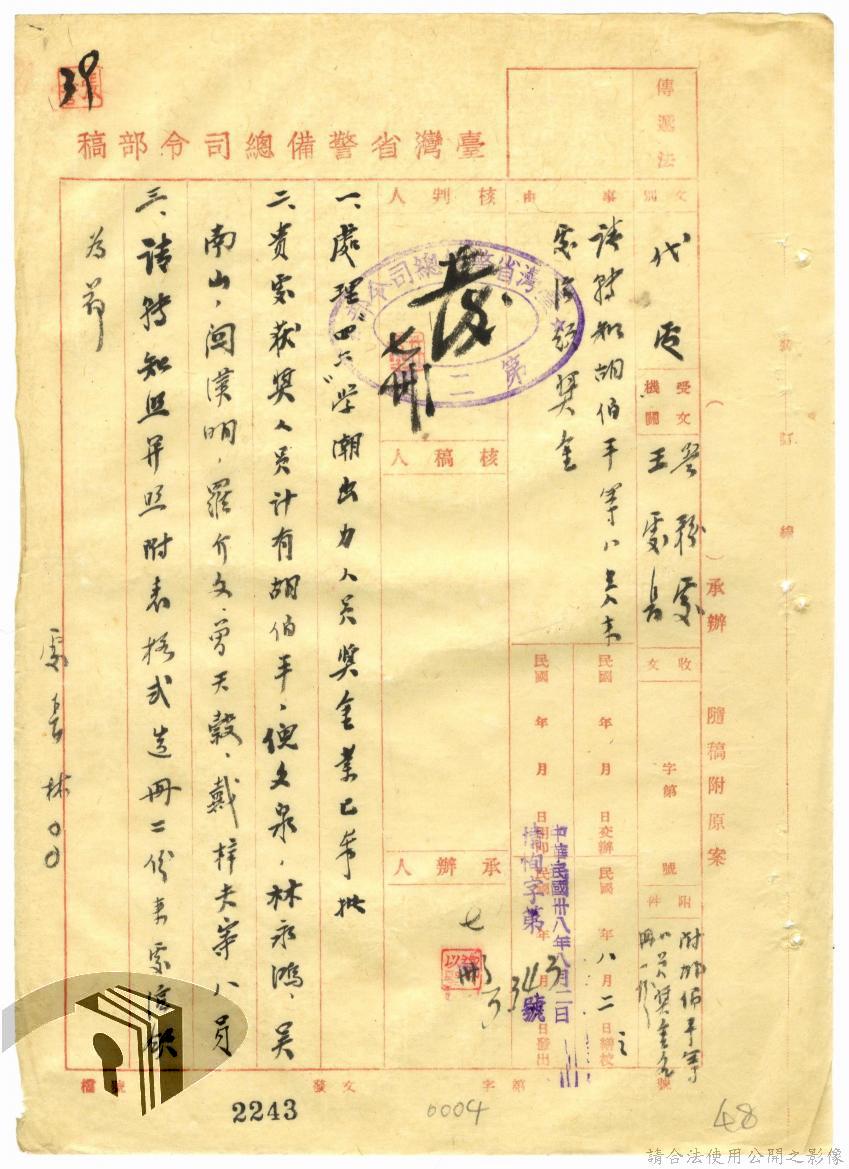 臺灣省警備總司令部稿
傳遞法
文別
代電
受文機關
警務處
王處長
收文
字第
號
附件
附胡伯平等
事由
請轉知胡伯平等八員來
處洽領獎金
民國 年 月 日交辦
民國 年八月二日繕校
民國 年 月
日發出
中華民國卅八年八月二日
情恂字第
3343
號
核判人
臺灣省警備總司令部
第二
發
七
卅
核稿人
承辦人
七
卅
承辦
隨稿附原案
裝
訂
線
一、處理“四六”學潮出力人員獎金業已奉批
二、貴處獲獎人員計有胡伯平、倪文泉、林永鴻、吳
南山、閻漢明、羅介文、曾天毅、戴梓夫等八員
三、請轉知照并照附表格式造冊二份來處洽領
為荷
處長林○○
檔號
發文
字第
號
2243
0004
48
39
請合法使用公開之影像